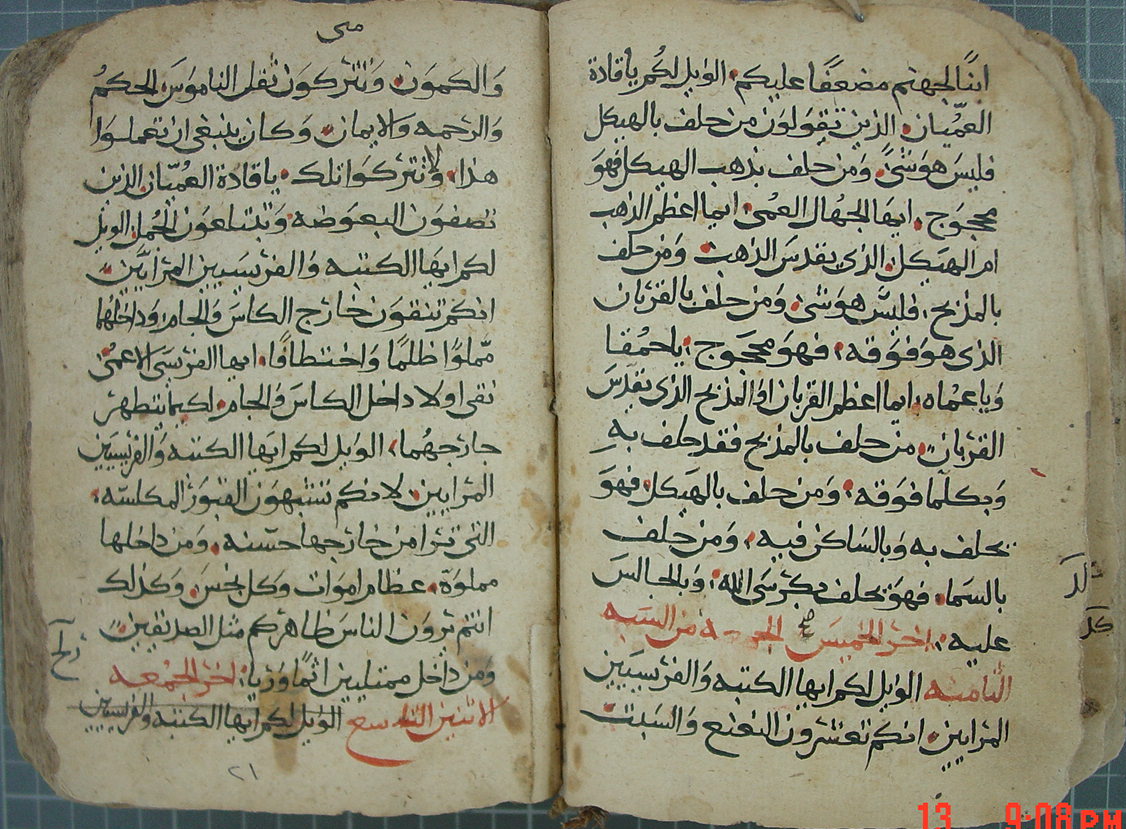 ابنًا لجهنم مضعفًا عليكم. الويل لكم ياقادة
العميان. الذين تقولون من حلف بالهيكل
فليس هو شي. ومن حلف بذهب الهيكل فهو
محجوج. ايها الجهال العمي. ايما اعظم الذهب
ام الهيكل. الذي يقدس الذهب. ومن حلف
بالمذبح. فليس هو شي. ومن حلف بالقربان
الذي هو فوقه. فهو محجوج. ياحمقا
وياعماه. ايما اعظم القربان او المذبح الذي يقدس
القربان. من حلف بالمذبح فقد حلف به
وبكلما فوقه. ومن حلف بالهيكل فهو
يحلف به وبالساكن فيه. ومن حلف
بالسما. فهو يحلف بكرسي الله. وبالجالس
عليه. اخر الخميس من السبه
الثامنه الويل لكم ايها الكتبه والفريسيين
المرايين. انكم تعشرون النعنع والسبت
كل
متى
والكمون. وتتركون ثقل الناموس الحكم
والرحمه والايمان. وكان ينبغي ان تعملوا
هذا. ولا تتركوا تلك. ياقادة العميان الذين
تصفون البعوضه وتبتلعون الجمل. الويل
لكم ايها الكتبه والفريسيين المرايين.
انكم تنقون خارج الكاس والجام. وداخلهما
مملوًا ظلمًا واختطافًا. ايها الفريسي الاعمى
نقي اولا داخل الكاس والجام. لكيما يتطهر
خارجهما. الويل لكم ايها الكتبه والفريسيين
المرايين. لانكم تشبهون القبور المكلسه.
التي ترا من خارجها حسنه. ومن داخلها
مملوة. عظام اموات وكل نجس. وكذلك
انتم ترون الناس ظاهركم مثل الصديقين.
ومن داخل ممتليين اثمًا وريا. اخر الجمعه
الاثنين التاسع الويل لكم ايها الكتبه والفريسيين
٢١
13 9:08 PM